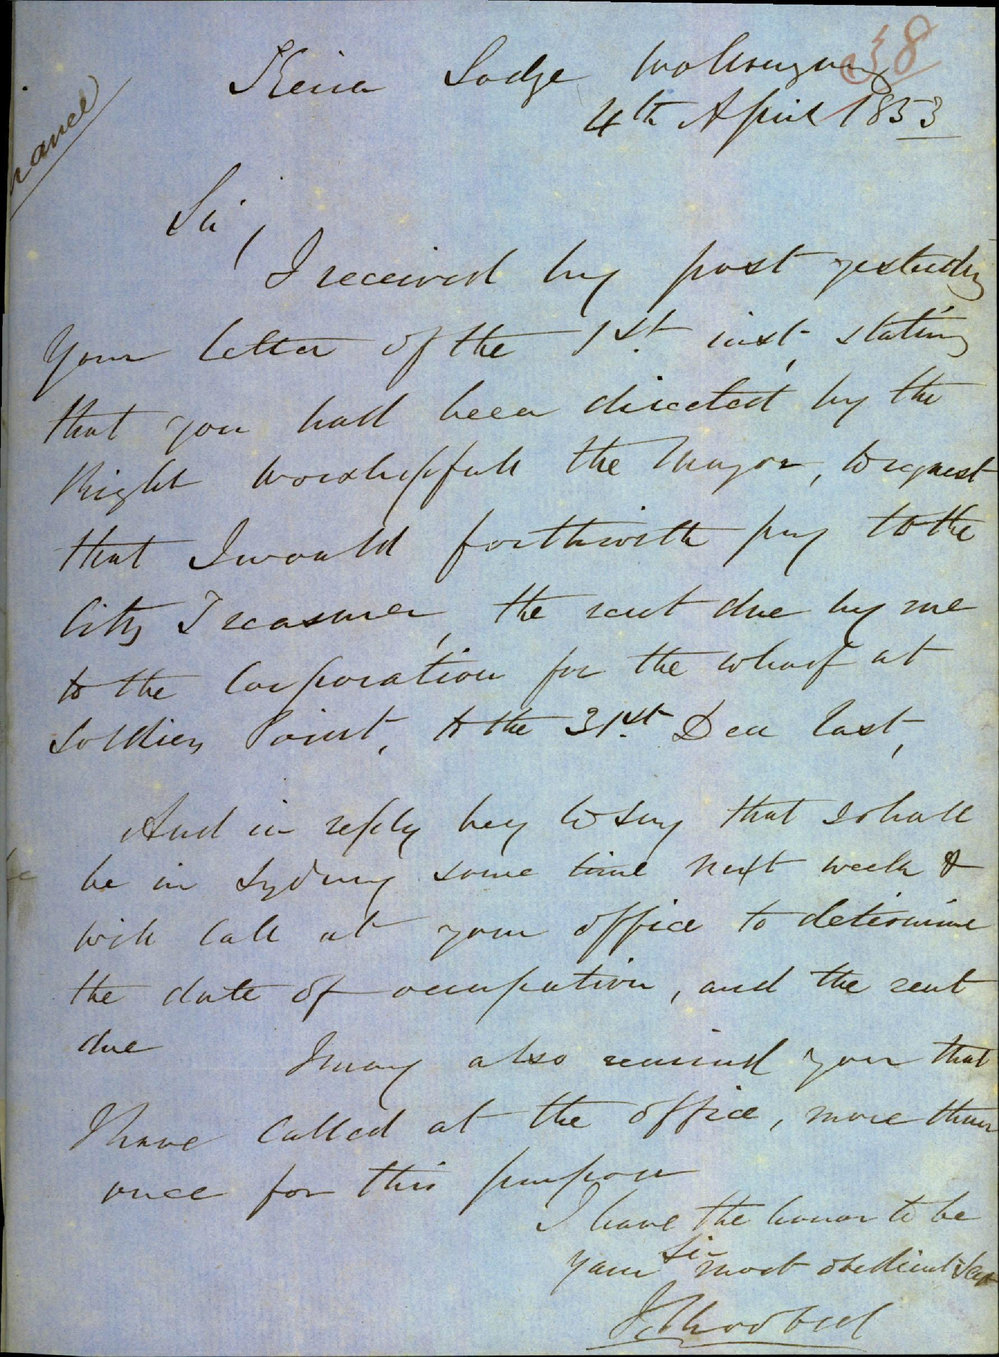 38
Keira Lodge Wollongong
4th April 1853
Sir,
I received by post yesterday
Your letter of the 1st. inst, stating
that you had been directed by the
Right Worshipfull the Mayor, to request
that I would forthwith pay to the
City Treasurer, the rent due by me
to the Corporation for the wharf at
Soldiers Point, to the 31st. Dec last,
And in reply beg to say that I shall
be in Sydney some time next week &
will call at your office to determine
the date of occupation, and the rent
due I may also remind you that
I have called at the office, more than
once for this purpose
I have the honor to be
Sir
Your most obedient Sert